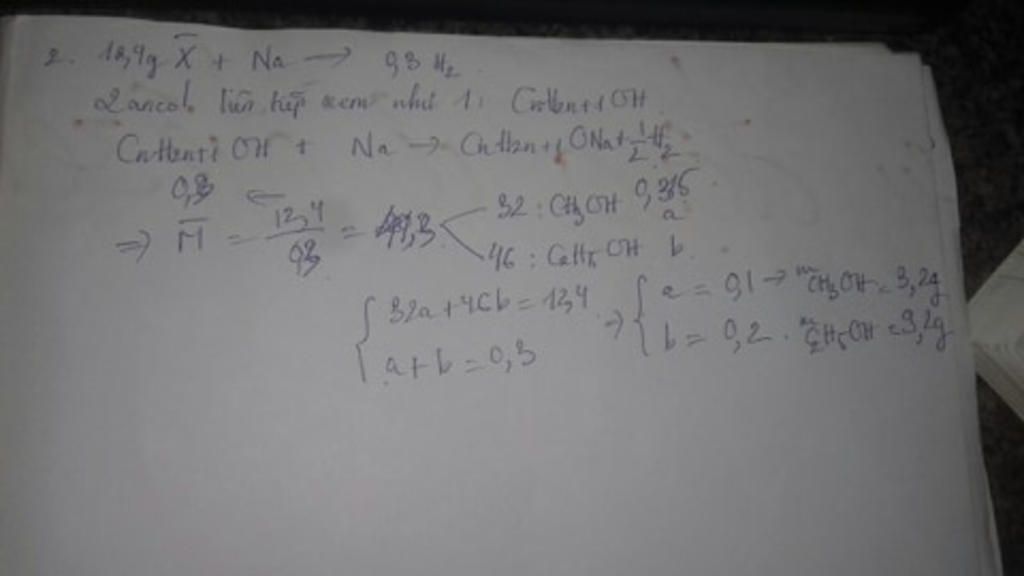 2. 12,4g X̄ + Na → 0,3 H₂
2 ancol liên tiếp xem như 1: CnH2n+1 OH
CnH2n+1 OH + Na → CnH2n+1 ONa + 1/2 H₂
0,3 ← 0,15
⇒ M̄ = 12,4 / 0,3 = 41,3 < 32 : CH₃OH a
46 : C₂H₅OH b
{ 32a + 46b = 12,4 ⇒ { a = 0,1 → mCH₃OH = 3,2g
a + b = 0,3 b = 0,2 . mC₂H₅OH = 9,2g